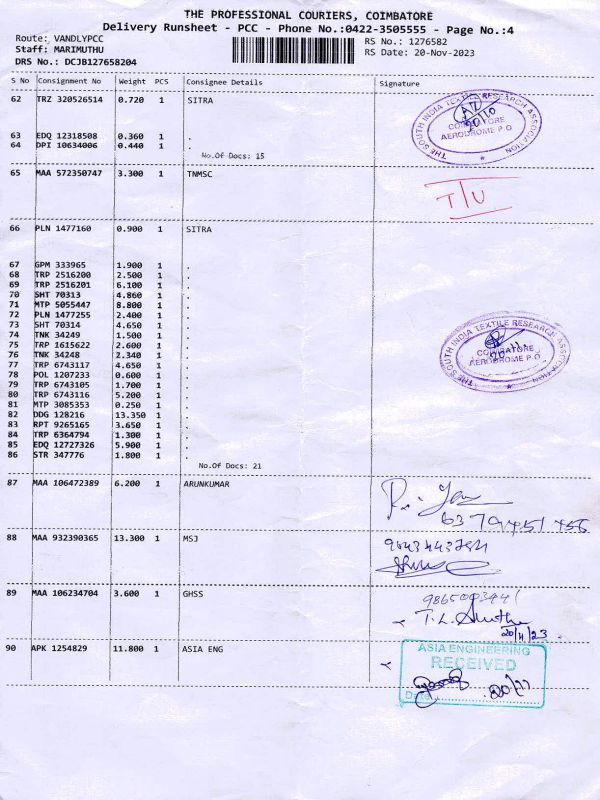 THE PROFESSIONAL COURIERS, COIMBATORE
Delivery Runsheet - PCC - Phone No.:0422-3505555 - Page No.:4
Route: VANDLYPCC
Staff: MARIMUTHU
DRS No.: DCJB127658204
RS No.: 1276582
RS Date: 20-Nov-2023
S No Consignment No Weight PCS Consignee Details Signature
62 TRZ 320526514 0.720 1 SITRA
63 EDQ 12318508 0.360 1 .
64 DPI 10634006 0.440 1 .
No.Of Docs: 15
THE SOUTH INDIA TEXTILE RESEARCH ASSOCIATION
COIMBATORE
AERODROME P.O
65 MAA 572350747 3.300 1 TNMSC
T/U
66 PLN 1477160 0.900 1 SITRA
67 GPM 333965 1.900 1 .
68 TRP 2516200 2.500 1 .
69 TRP 2516201 6.100 1 .
70 SHT 70313 4.860 1 .
71 MTP 5055447 8.800 1 .
72 PLN 1477255 2.400 1 .
73 SHT 70314 4.650 1 .
74 TNK 34249 1.500 1 .
75 TRP 1615622 2.600 1 .
76 TNK 34248 2.340 1 .
77 TRP 6743117 4.650 1 .
78 POL 1207233 0.600 1 .
79 TRP 6743105 1.700 1 .
80 TRP 6743116 5.200 1 .
81 MTP 3085353 0.250 1 .
82 DDG 128216 13.350 1 .
83 RPT 9265165 3.650 1 .
84 TRP 6364794 1.300 1 .
85 EDQ 12727326 5.900 1 .
86 STR 347776 1.800 1 .
No.Of Docs: 21
THE SOUTH INDIA TEXTILE RESEARCH ASSOCIATION
COIMBATORE
AERODROME P.O
87 MAA 106472389 6.200 1 ARUNKUMAR
6379451456
88 MAA 932390365 13.300 1 MSJ
89 MAA 106234704 3.600 1 GHSS
20/11/23
90 APK 1254829 11.800 1 ASIA ENG
ASIA ENGINEERING
RECEIVED
Date